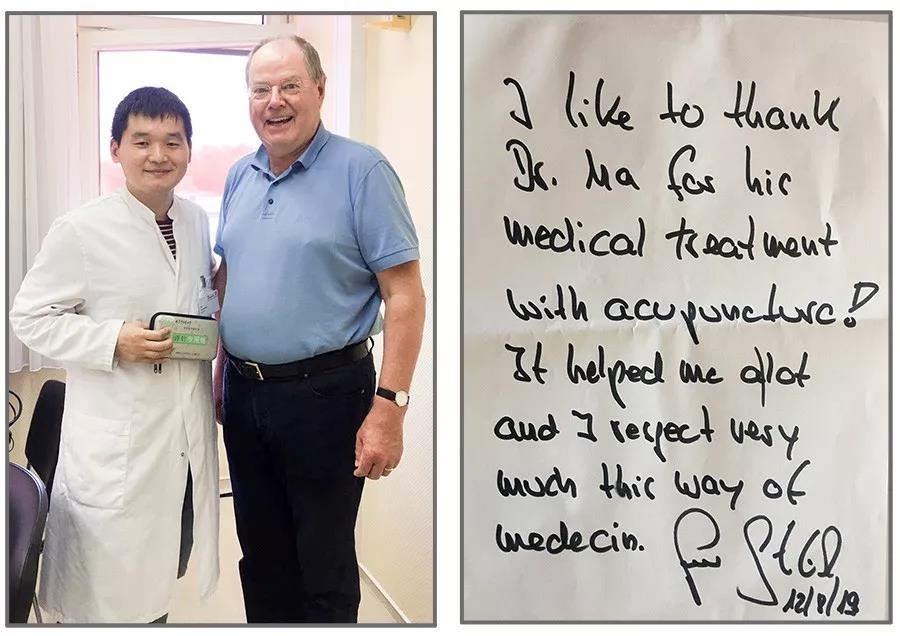 I like to thank
Dr. Ma for his
medical treatment
with acupuncture!
It helped me alot
and I respect very
much this way of
medecin.
12/8/19